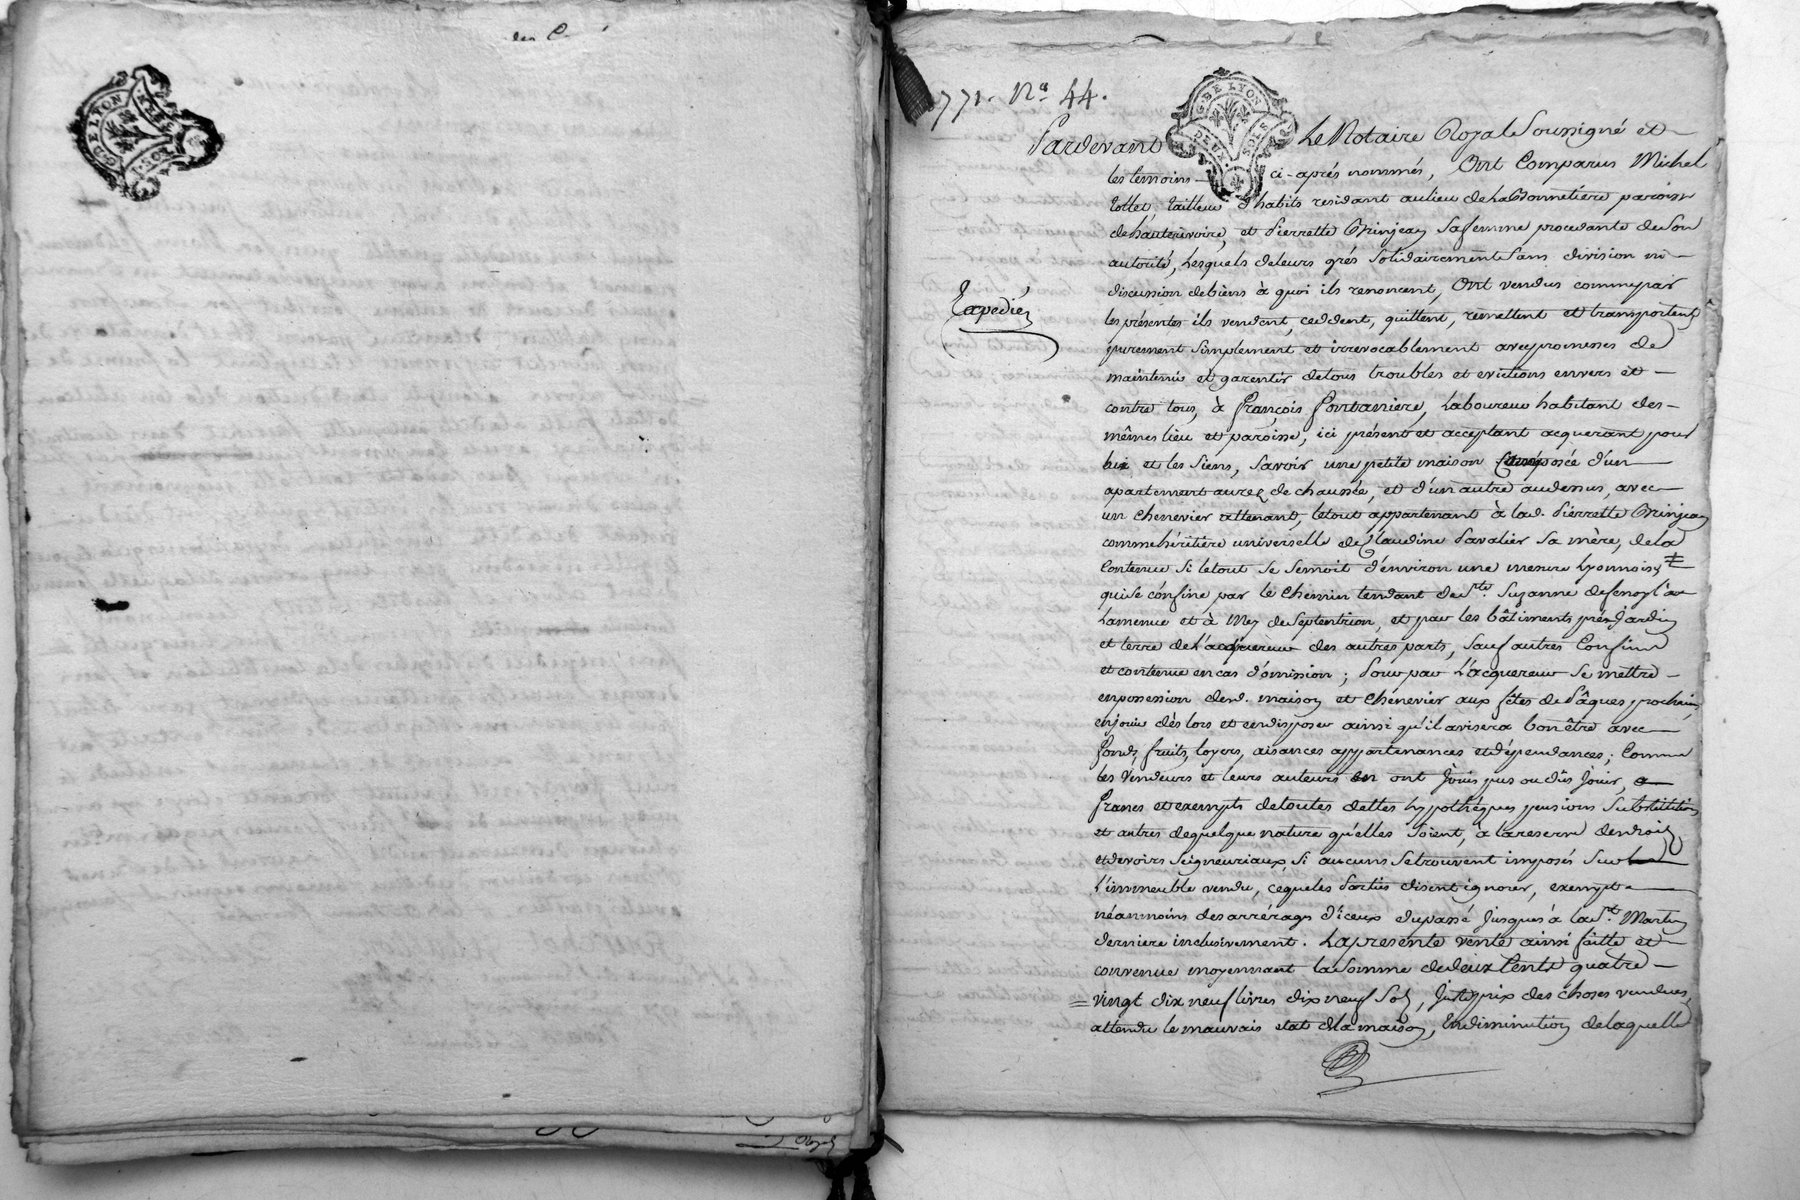 G. DE LYON
DEUX SOLS
1771. N° 44.
G. DE LYON
DEUX SOLS
Pardevant Le Notaire Royal Soussigné et
les temoins ci-aprés nommés, Ont Comparus Michel
tailleur d'habits residant au lieu de la Bonnetiere paroisse
de hauterivoire, et Pierrette Grinjean Sa femme procedante de Son
autorité, Lesquels de leurs grés Solidairement Sans division ni
discussion de biens à quoi ils renoncent, Ont vendus comme par
Expedié
les présentes ils vendent, ceddent, quittent, remettent et transportent
purement Simplement et irrevocablement avec promesses de
maintenir et garentir de tous troubles et evictions envers et
contre tous, à françois fontaniere, Laboureur habitant des
mêmes lieu et paroisse, ici présent et acceptant acquerant pour
lui et les Siens, Savoir une petite maison Composée d'un
apartement au rez de chaussée, et d'un autre audessus, avec
un chenevier attenant, le tout appartenant à lad. Pierrette Grinjean
comme héritière universelle de Claudine Pavalier Sa mère, de la
Contenue Si le tout Se Semoit d'environ une mesure Lyonnoise
qui Se confine par le Chemin tendant de Ste. Suzanne
et à Mey de Septentrion, et par les bâtiments prés Jardin
et terre de L'acquereur des autres parts, Sauf autres Confins
et contenue en cas d'omission; Pour par L'acquereur Se mettre
en possession desd. maison et Chenevier aux fêtes de Pâques prochain,
en jouir dès lors et en disposer ainsi qu'il avisera bon être avec
fonds, fruits, loyers, aisances appartenances et dépendances; Comme
les Vendeurs et leurs auteurs en ont Joui pus ou dûs Jouir,
francs et exempts de toutes dettes hypothéques pensions Substitutions
et autres de quelque nature qu'elles Soient, à la reserve des droits
et devoirs Seigneuriaux Si aucuns Se trouvent imposés Sur
L'immeuble vendu, ce que les Parties disent ignorer, exempt
néanmoins des arrérages d'iceux du passé Jusques à la St. Martin
derniere inclusivement. La presente vente ainsi faitte et
convenue moyennant la Somme de deux Cents quatre
vingt dix neuf livres dix neuf Sols, Juste prix des choses vendues,
attendu le mauvais etat de la maison, En diminution de laquelle